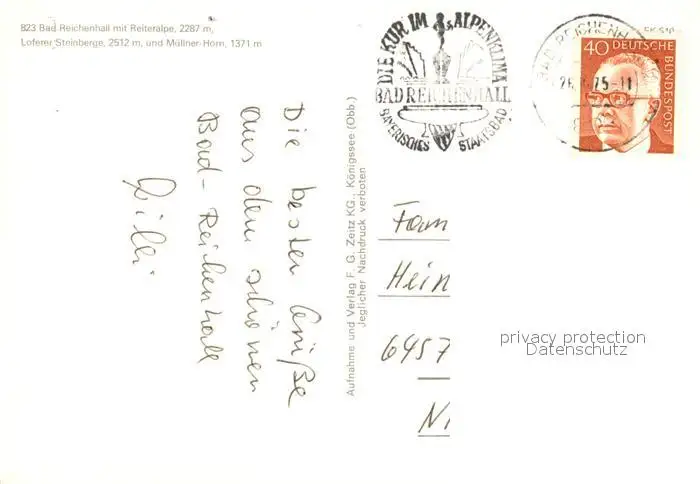 823 Bad Reichenhall mit Reiteralpe, 2287 m,
Loferer Steinberge, 2512 m, und Müllner-Horn, 1371 m
Die besten Grüße
aus dem schönen
Bad-Reichenhall
Aufnahme und Verlag F. G. Zeitz KG., Königssee (Obb.)
Jeglicher Nachdruck verboten
DIE KUR IM ALPENKLIMA
BAD REICHENHALL
BAYERISCHES STAATSBAD
BAD REICHENHALL
75-11
40 DEUTSCHE
BUNDESPOST
Fam
Hein
6457
privacy protection
Datenschutz